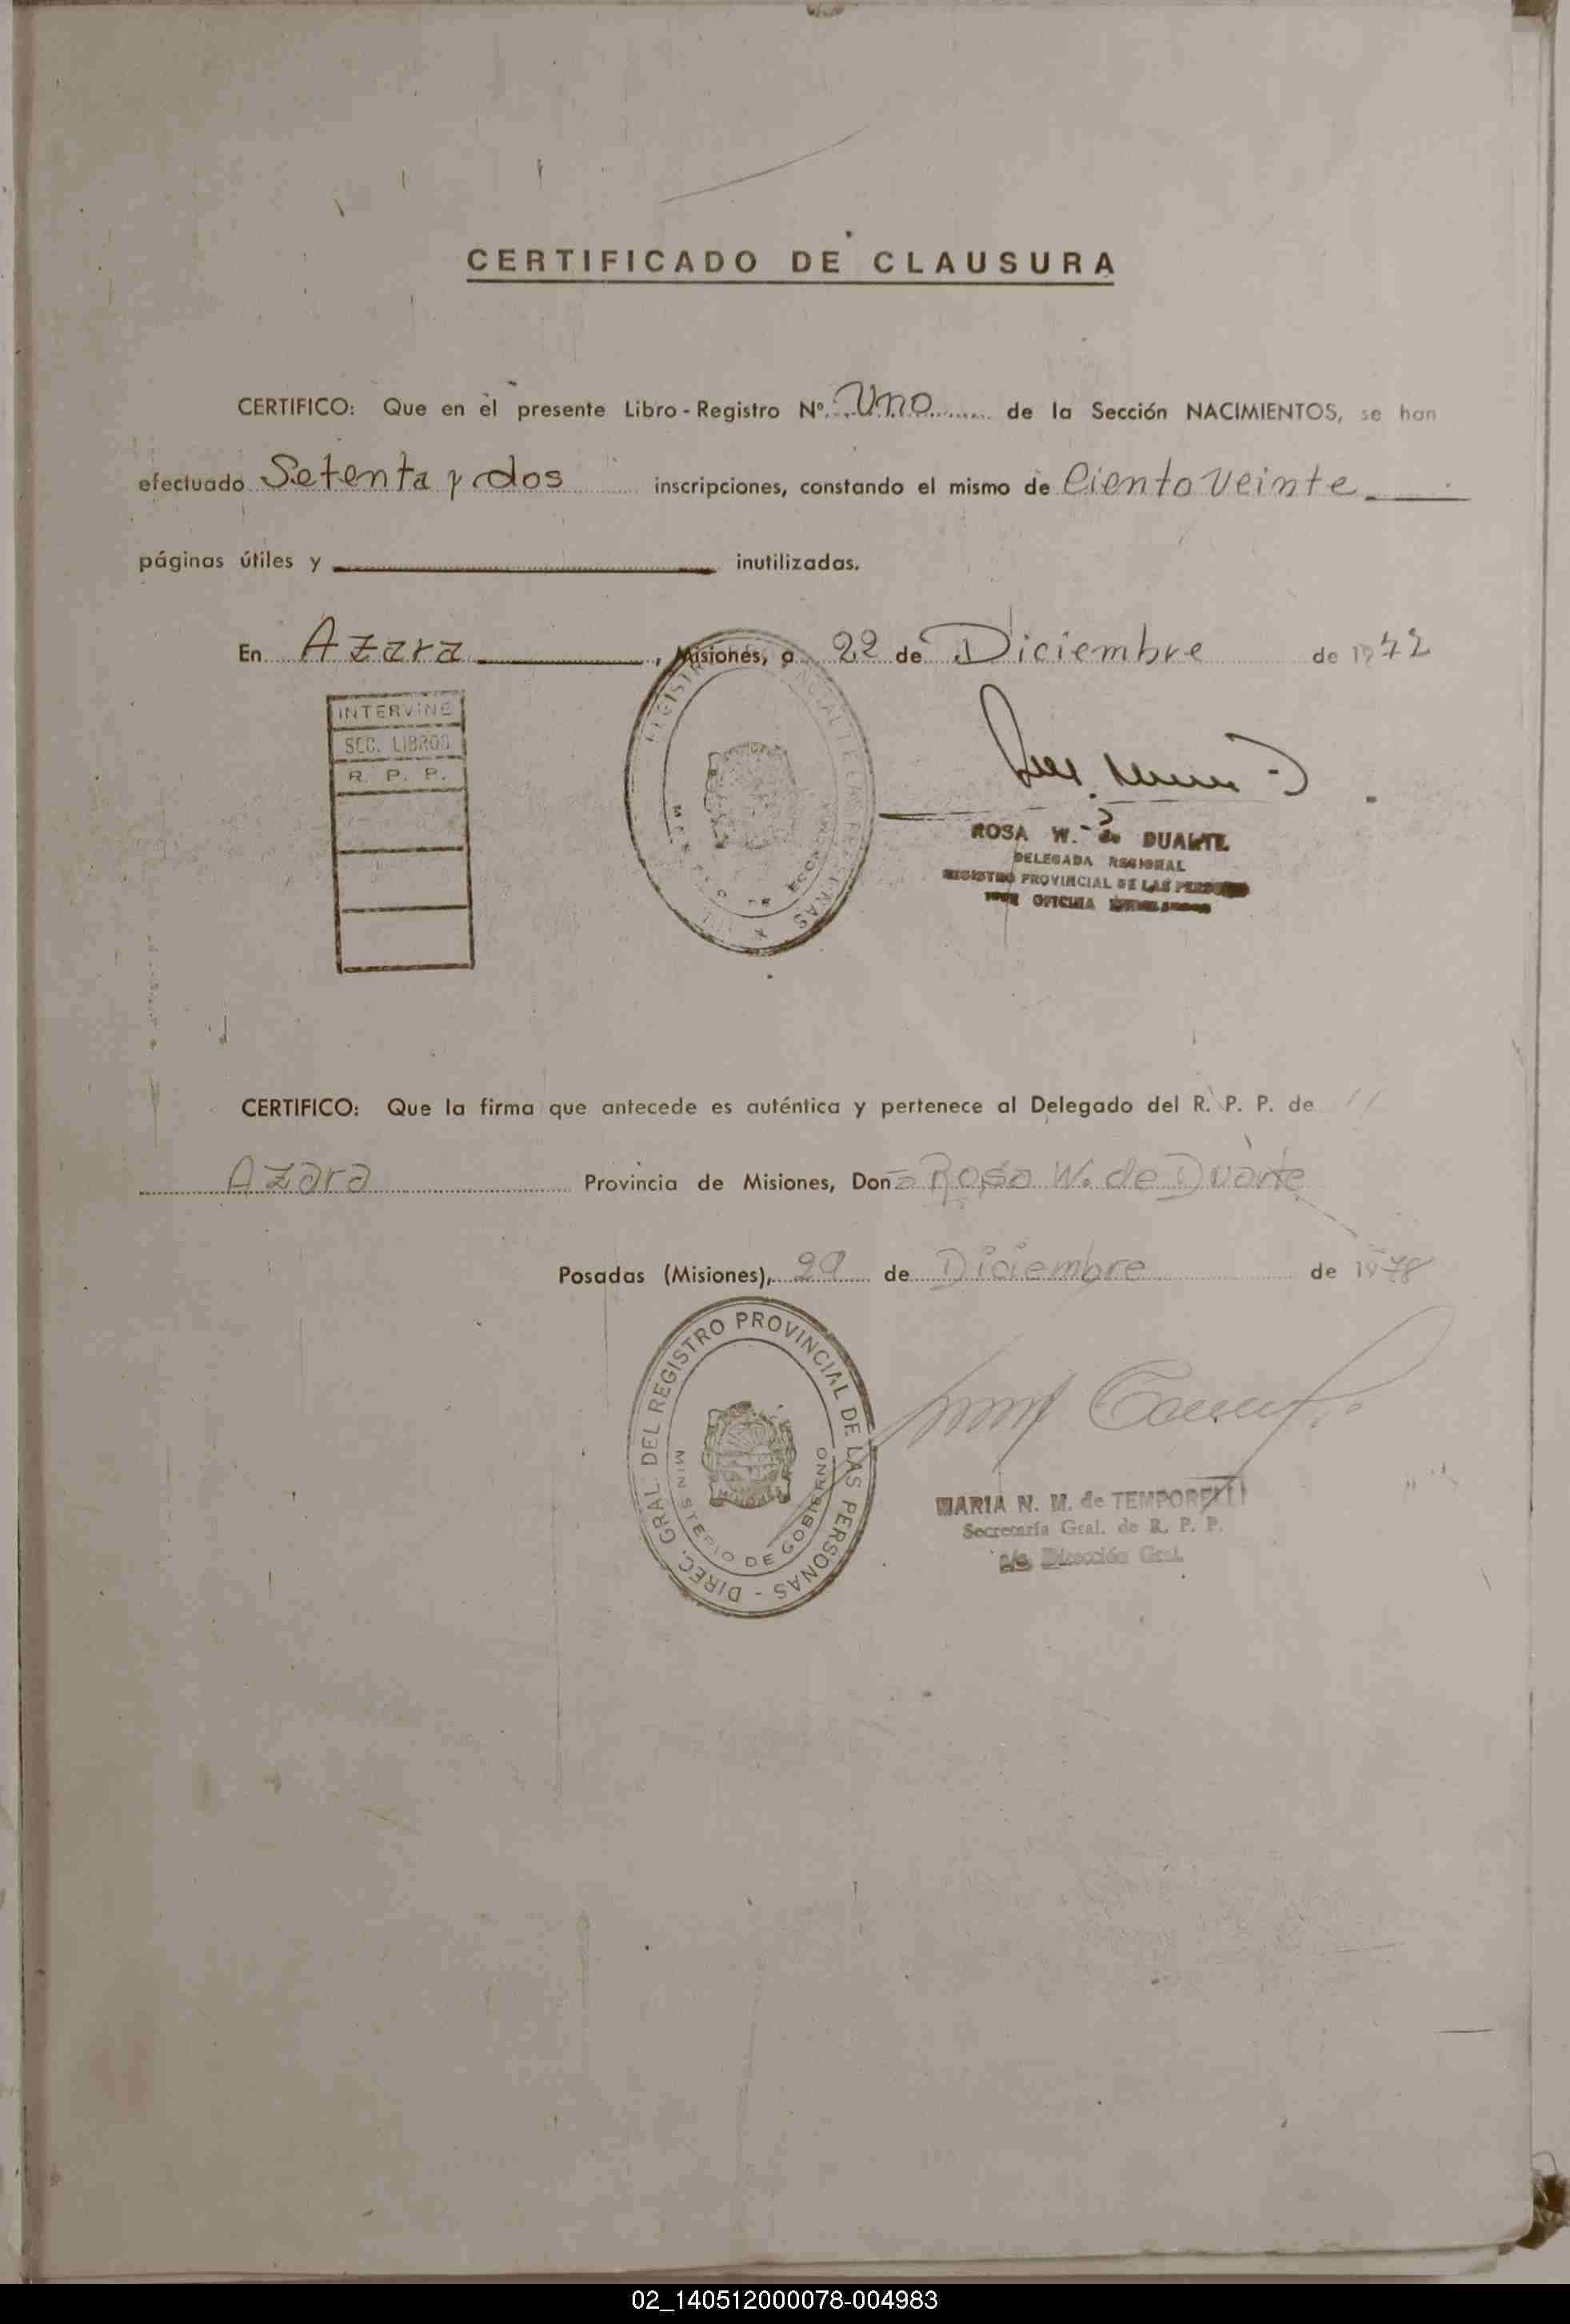 CERTIFICADO DE CLAUSURA
CERTIFICO: Que en el presente Libro-Registro Nº Uno de la Sección NACIMIENTOS, se han
efectuado Setenta y dos inscripciones, constando el mismo de Ciento Veinte
páginas útiles y inutilizadas.
En Azara, Misiones, a 22 de Diciembre de 19
INTERVINE
SEC. LIBROS
R. P. P.
ROSA W. de DUARTE
DELEGADA REGIONAL
REGISTRO PROVINCIAL DE LAS PERSONAS
OFICINA
CERTIFICO: Que la firma que antecede es auténtica y pertenece al Delegado del R. P. P. de
Azara Provincia de Misiones, Don a Rosa W. de Duarte
Posadas (Misiones), 29 de Diciembre de 1978
DIREC. GRAL. DEL REGISTRO PROVINCIAL DE LAS PERSONAS -
MINISTERIO DE GOBIERNO
MARIA N. M. de TEMPORELLI
Secretaría Gral. de R. P. P.
a/c Dirección Gral.
02_140512000078-004983